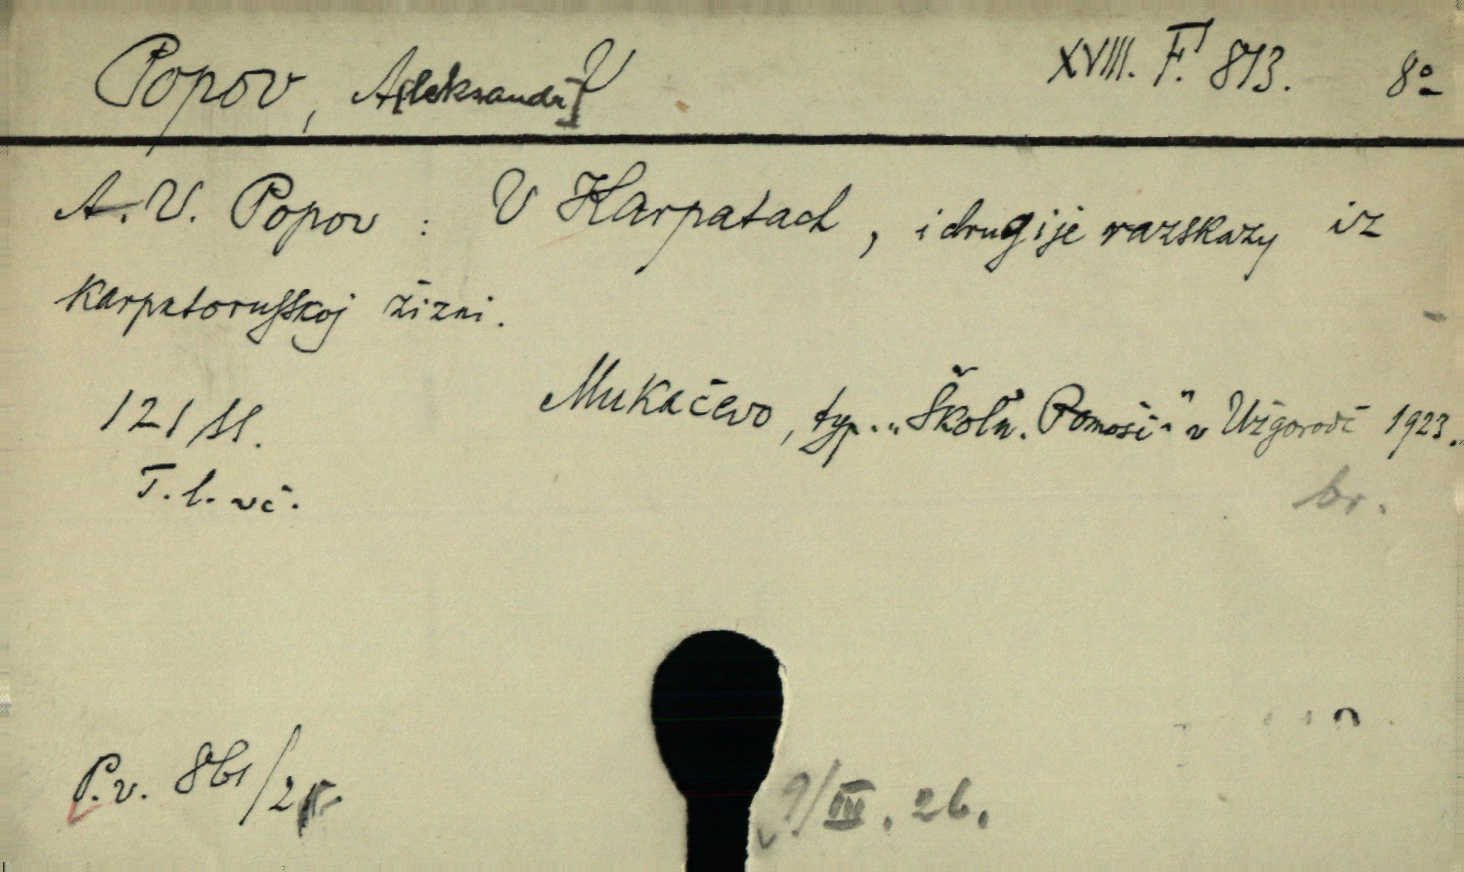 Popov, A[leksandr] V XVIII. F. 813. 8º
A. V. Popov : V Karpatach, i drugije razskazy iz
karpatorusskoj žizni.
Mukačevo, typ. „Školň. Pomošč" v Užgorodě 1923.
121 ss.
T. l. vč.
br.
P. v. 861/2
9/III. 26.